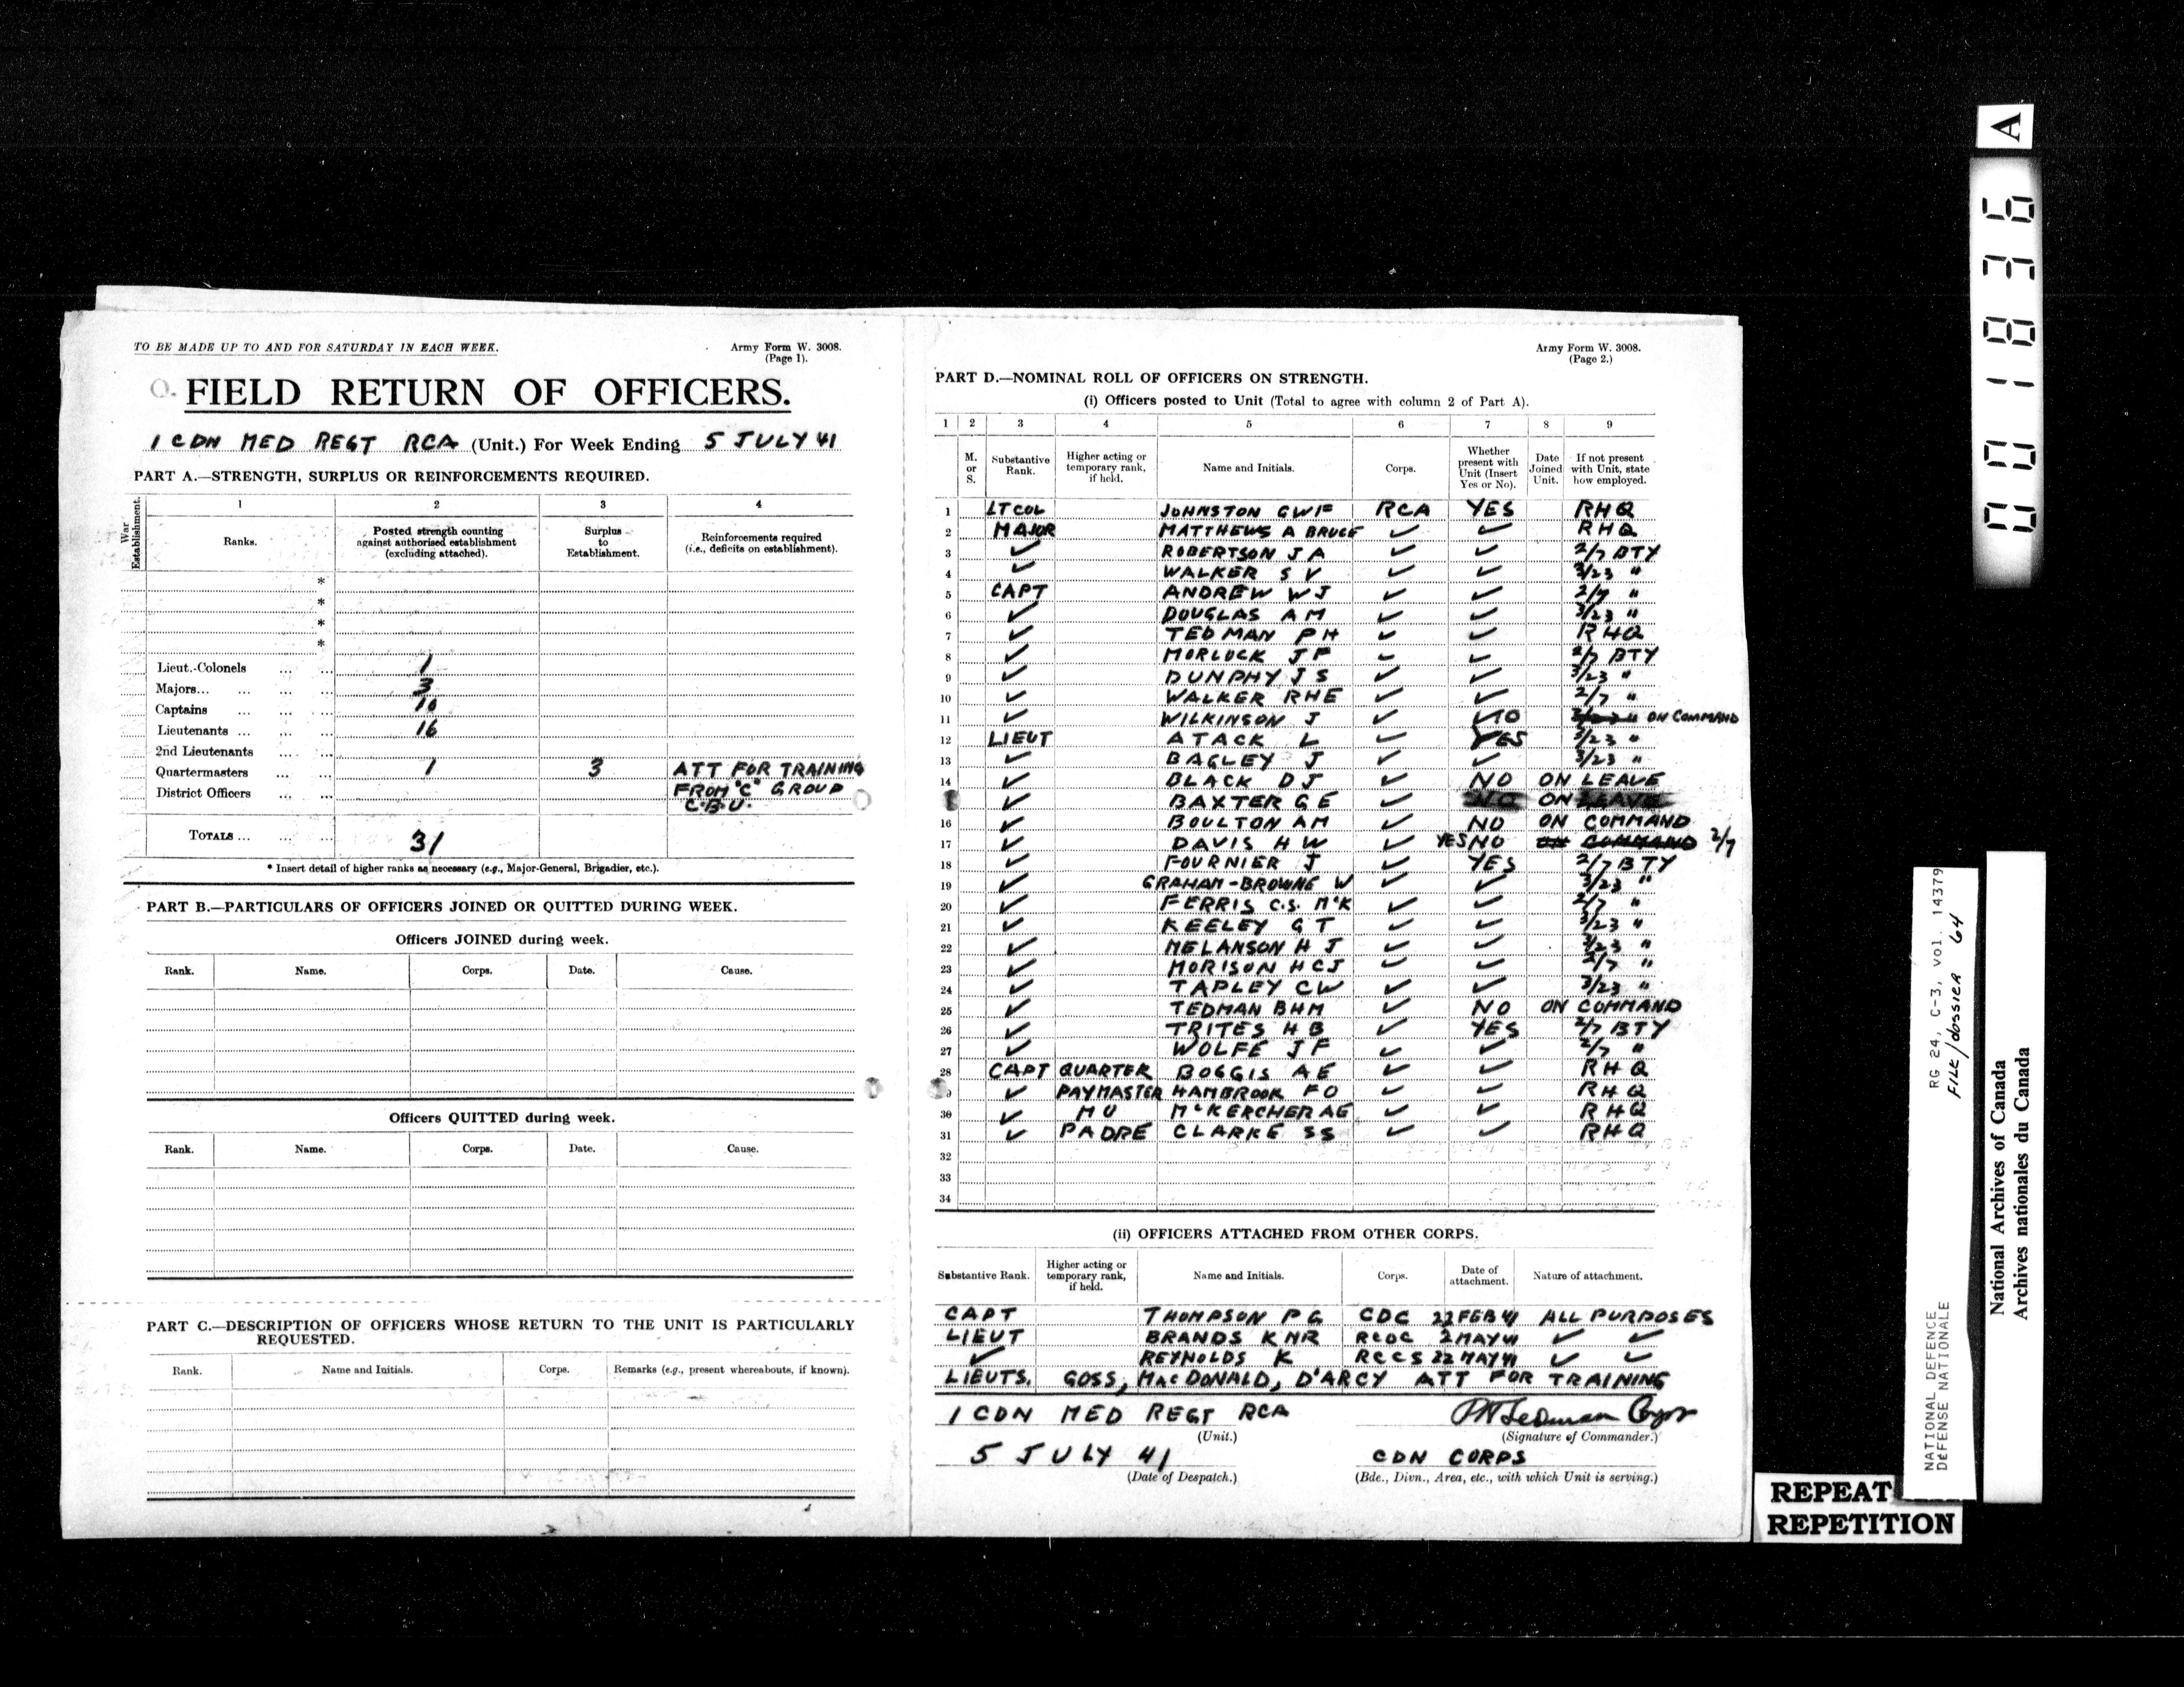 TO BE MADE UP TO AND FOR SATURDAY IN EACH WEEK.
Army Form W. 3008.
(Page 1).
FIELD RETURN OF OFFICERS.
1 CDN MED REGT RCA (Unit.) For Week Ending 5 JULY 41
PART A.—STRENGTH, SURPLUS OR REINFORCEMENTS REQUIRED.
War Establishment.
1 2 3 4
Ranks. Posted strength counting against authorised establishment (excluding attached). Surplus to Establishment. Reinforcements required (i.e., deficits on establishment).
*
*
*
*
Lieut.-Colonels ... ... 1
Majors... ... ... ... 3
Captains ... ... ... 10
Lieutenants ... ... ... 16
2nd Lieutenants ... ...
Quartermasters ... ... 1 3 ATT FOR TRAINING
District Officers ... ... FROM "C" GROUP
C.B.U.
TOTALS ... ... ... 31
* Insert detail of higher ranks as necessary (e.g., Major-General, Brigadier, etc.).
PART B.—PARTICULARS OF OFFICERS JOINED OR QUITTED DURING WEEK.
Officers JOINED during week.
Rank. Name. Corps. Date. Cause.
Officers QUITTED during week.
Rank. Name. Corps. Date. Cause.
PART C.—DESCRIPTION OF OFFICERS WHOSE RETURN TO THE UNIT IS PARTICULARLY
REQUESTED.
Rank. Name and Initials. Corps. Remarks (e.g., present whereabouts, if known).
Army Form W. 3008.
(Page 2.)
PART D.—NOMINAL ROLL OF OFFICERS ON STRENGTH.
(i) Officers posted to Unit (Total to agree with column 2 of Part A).
1 2 3 4 5 6 7 8 9
M. or S. Substantive Rank. Higher acting or temporary rank, if held. Name and Initials. Corps. Whether present with Unit (Insert Yes or No). Date Joined Unit. If not present with Unit, state how employed.
1 LT COL JOHNSTON GWF RCA YES RHQ
2 MAJOR MATTHEWS A BRUCE ✓ ✓ RHQ
3 ✓ ROBERTSON J A ✓ ✓ 2/7 BTY
4 ✓ WALKER S V ✓ ✓ 3/23 "
5 CAPT ANDREW W J ✓ ✓ 2/7 "
6 ✓ DOUGLAS A M ✓ ✓ 3/23 "
7 ✓ TEDMAN P H ✓ ✓ RHQ
8 ✓ MORLOCK J F ✓ ✓ 2/7 BTY
9 ✓ DUNPHY J S ✓ ✓ 3/23 "
10 ✓ WALKER RHE ✓ ✓ 2/7 "
11 ✓ WILKINSON J ✓ NO 3/23 " ON COMMAND
12 LIEUT ATACK L ✓ YES 3/23 "
13 ✓ BAGLEY J ✓ ✓ 3/23 "
14 ✓ BLACK D J ✓ NO ON LEAVE
✓ BAXTER G E ✓ NO ON LEAVE
16 ✓ BOULTON AM ✓ NO ON COMMAND
17 ✓ DAVIS H W ✓ YES NO ON COMMAND 2/7
18 ✓ FOURNIER J ✓ YES 2/7 BTY
19 ✓ GRAHAM-BROWNE W ✓ ✓ 3/23 "
20 ✓ FERRIS C.S. McK ✓ ✓ 2/7 "
21 ✓ KEELEY G T ✓ ✓ 3/23 "
22 ✓ MELANSON H J ✓ ✓ 3/23 "
23 ✓ MORISON H C J ✓ ✓ 2/7 "
24 ✓ TAPLEY CW ✓ ✓ 3/23 "
25 ✓ TEDMAN BHM ✓ NO ON COMMAND
26 ✓ TRITES H B ✓ YES 2/7 BTY
27 ✓ WOLFE J F ✓ ✓ 2/7 "
28 CAPT QUARTER BOGGIS AE ✓ ✓ RHQ
9 ✓ PAYMASTER HAMBROOK FO ✓ ✓ RHQ
30 ✓ MO McKERCHER AG ✓ ✓ RHQ
31 ✓ PADRE CLARKE SS ✓ ✓ RHQ
32
33
34
(ii) OFFICERS ATTACHED FROM OTHER CORPS.
Substantive Rank. Higher acting or temporary rank, if held. Name and Initials. Corps. Date of attachment. Nature of attachment.
CAPT THOMPSON P G CDC 22 FEB 41 ALL PURPOSES
LIEUT BRANDS K NR RCOC 2 MAY 41 ✓ ✓
✓ REYNOLDS K RCCS 22 MAY 41 ✓ ✓
LIEUTS. GOSS, MacDONALD, D'ARCY ATT FOR TRAINING
1 CDN MED REGT RCA PH Tedman Capt
(Unit.) (Signature of Commander.)
5 JULY 41 CDN CORPS
(Date of Despatch.) (Bde., Divn., Area, etc., with which Unit is serving.)
001836 A
RG 24, C-3, vol. 14379
FILE/dossier 64
NATIONAL DEFENCE
DÉFENSE NATIONALE
National Archives of Canada
Archives nationales du Canada
REPEAT
REPETITION